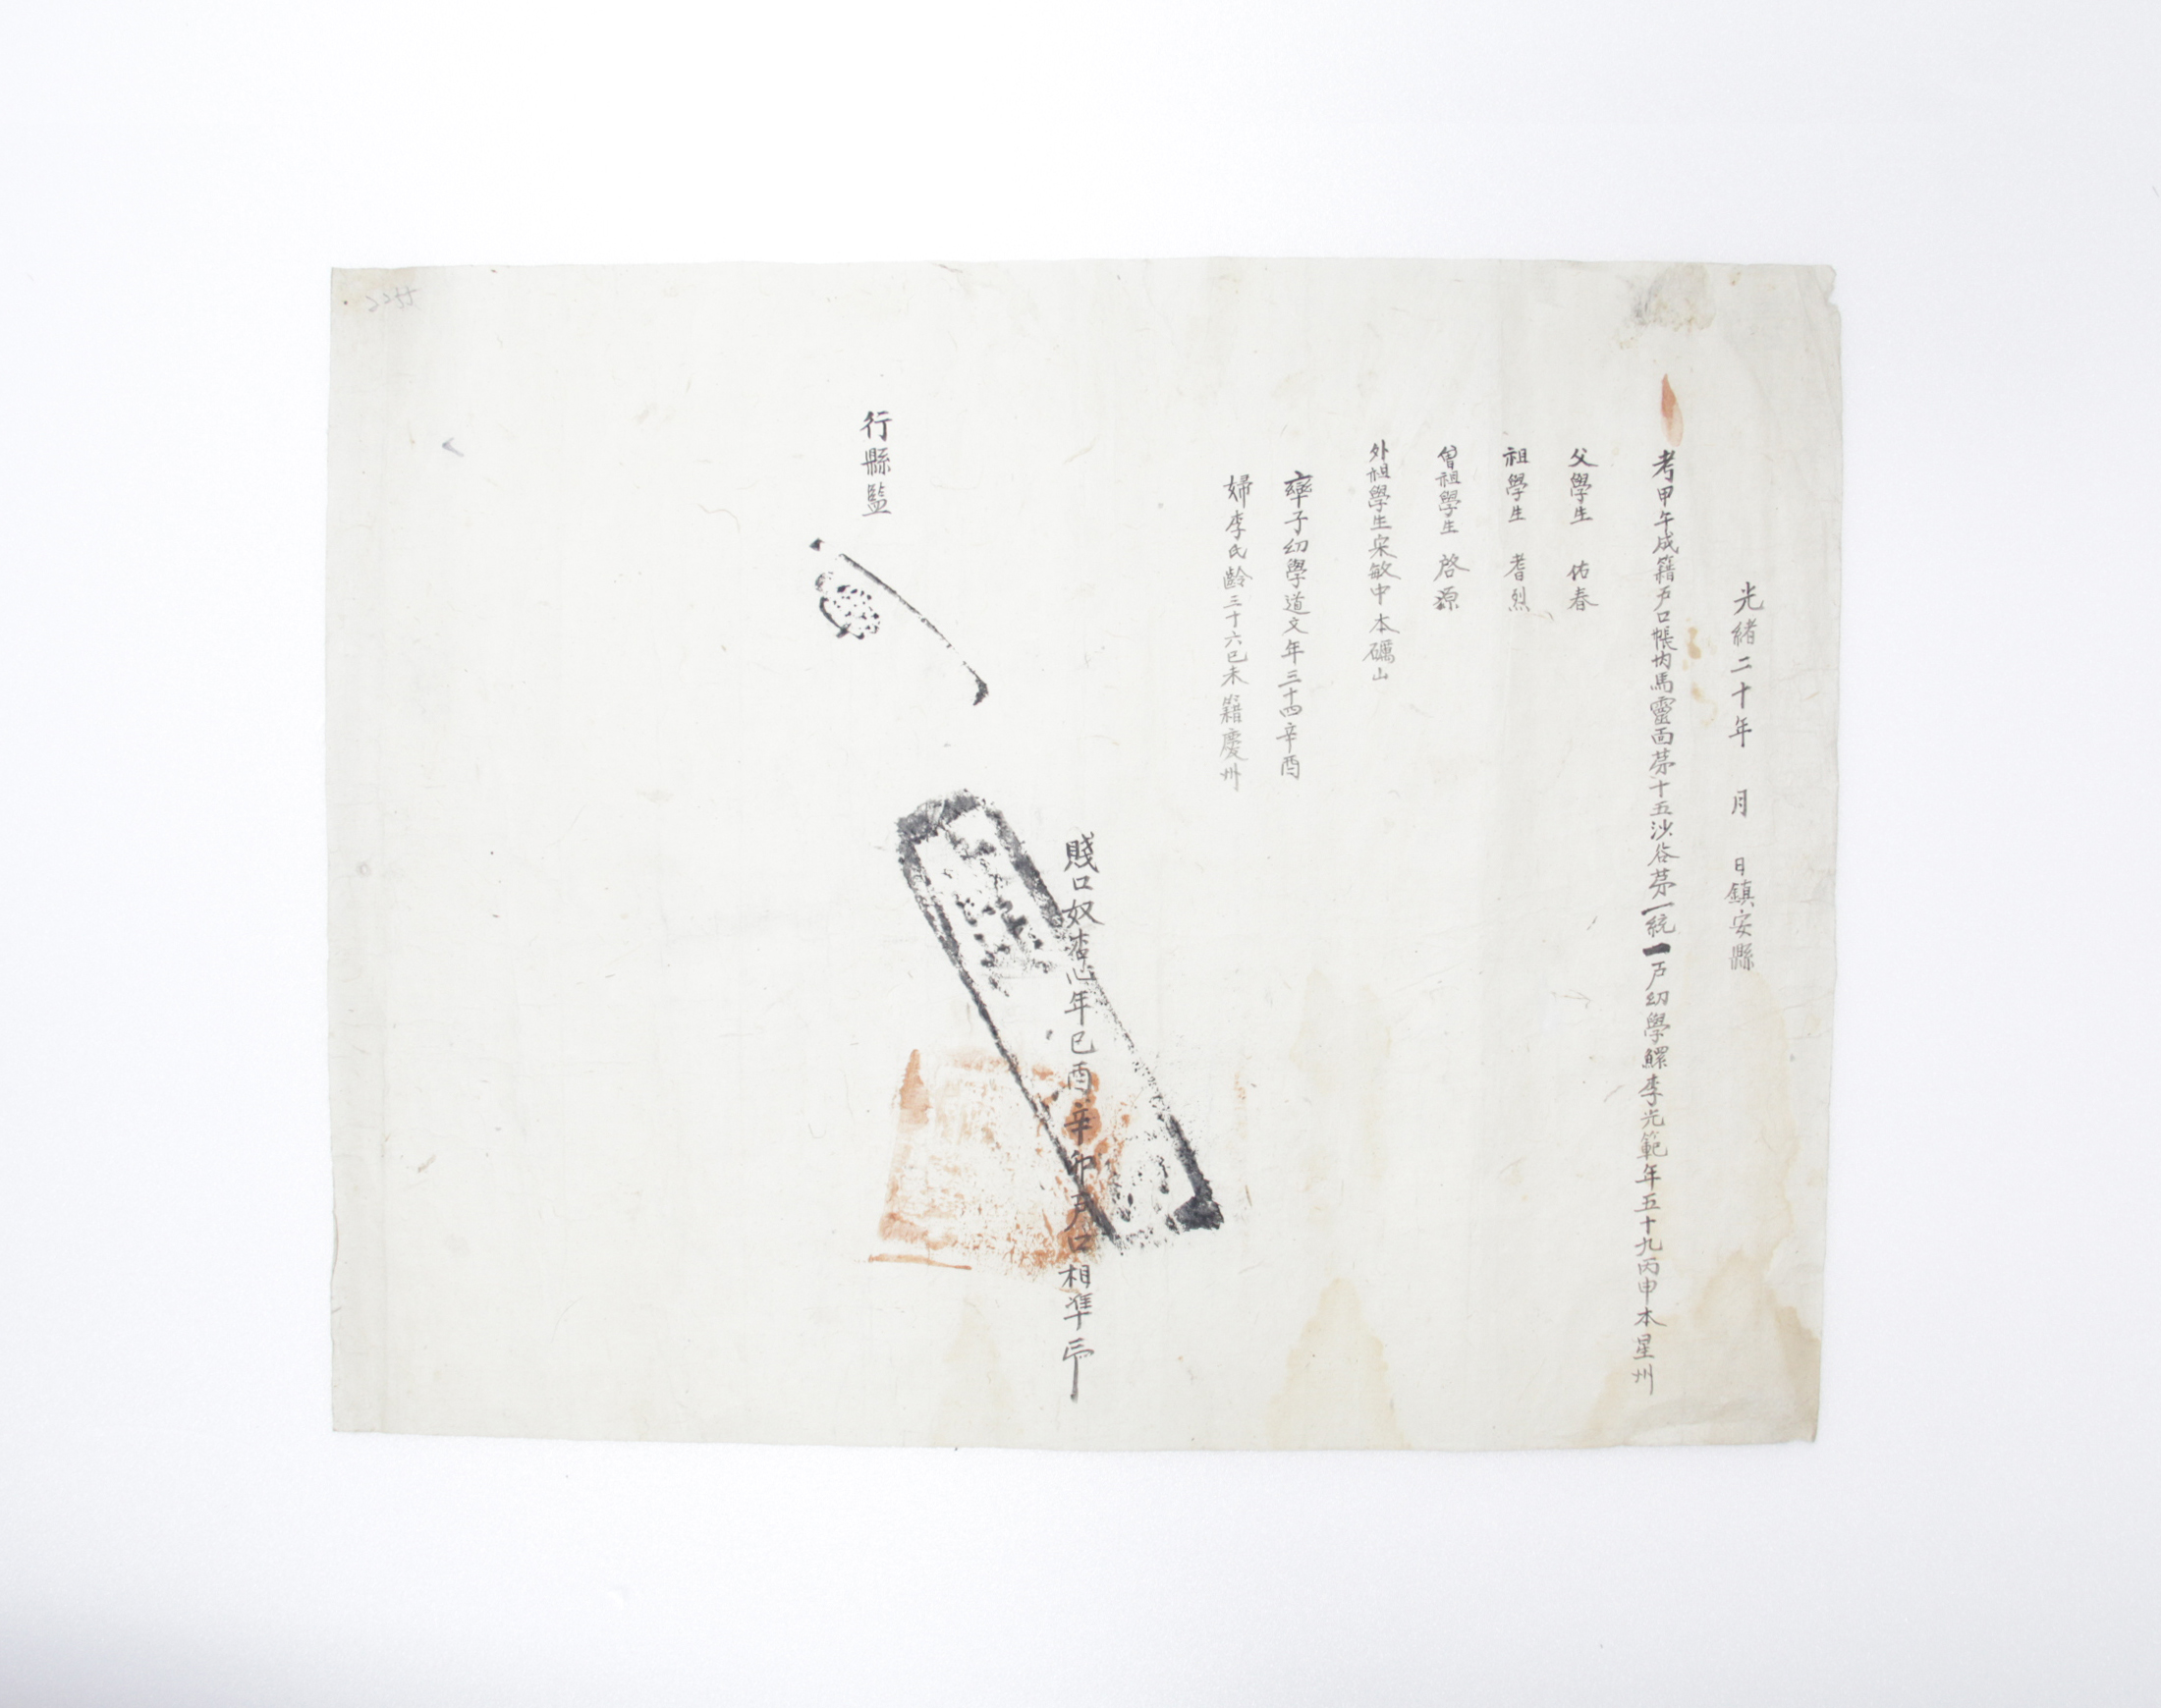 光緖二十年 月 日鎭安縣
考甲午成籍戶口帳內馬靈面苐十五沙谷苐一統一戶幼學鰥李光範年五十九丙申本星州
父學生 佑春
祖學生 耆烈
曾祖學生 啓源
外祖學生宋敏中本礪山
率子幼學道文年三十四辛酉
婦李氏齡三十六己未籍慶州
賤口奴 心年己酉辛卯戶口相凖印
行縣監